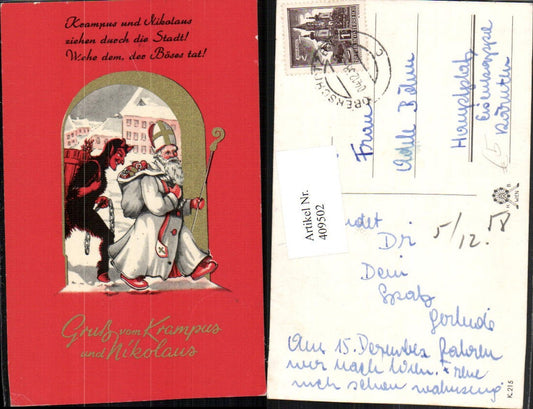 Krampus und Nikolaus
ziehen durch die Stadt!
Wehe dem, der Böses tat!
Gruß vom Krampus
und Nikolaus
Frau
Adele Böhm
Hauptplatz
Eisenkappel
Kärnten
Artikel Nr.
409502
5/12.58
Dir
Dein
Spatz
Gertrude
Am 15. Dezember fahren
wir nach Wien. Freue
mich schon wahnsinnig.
K.215